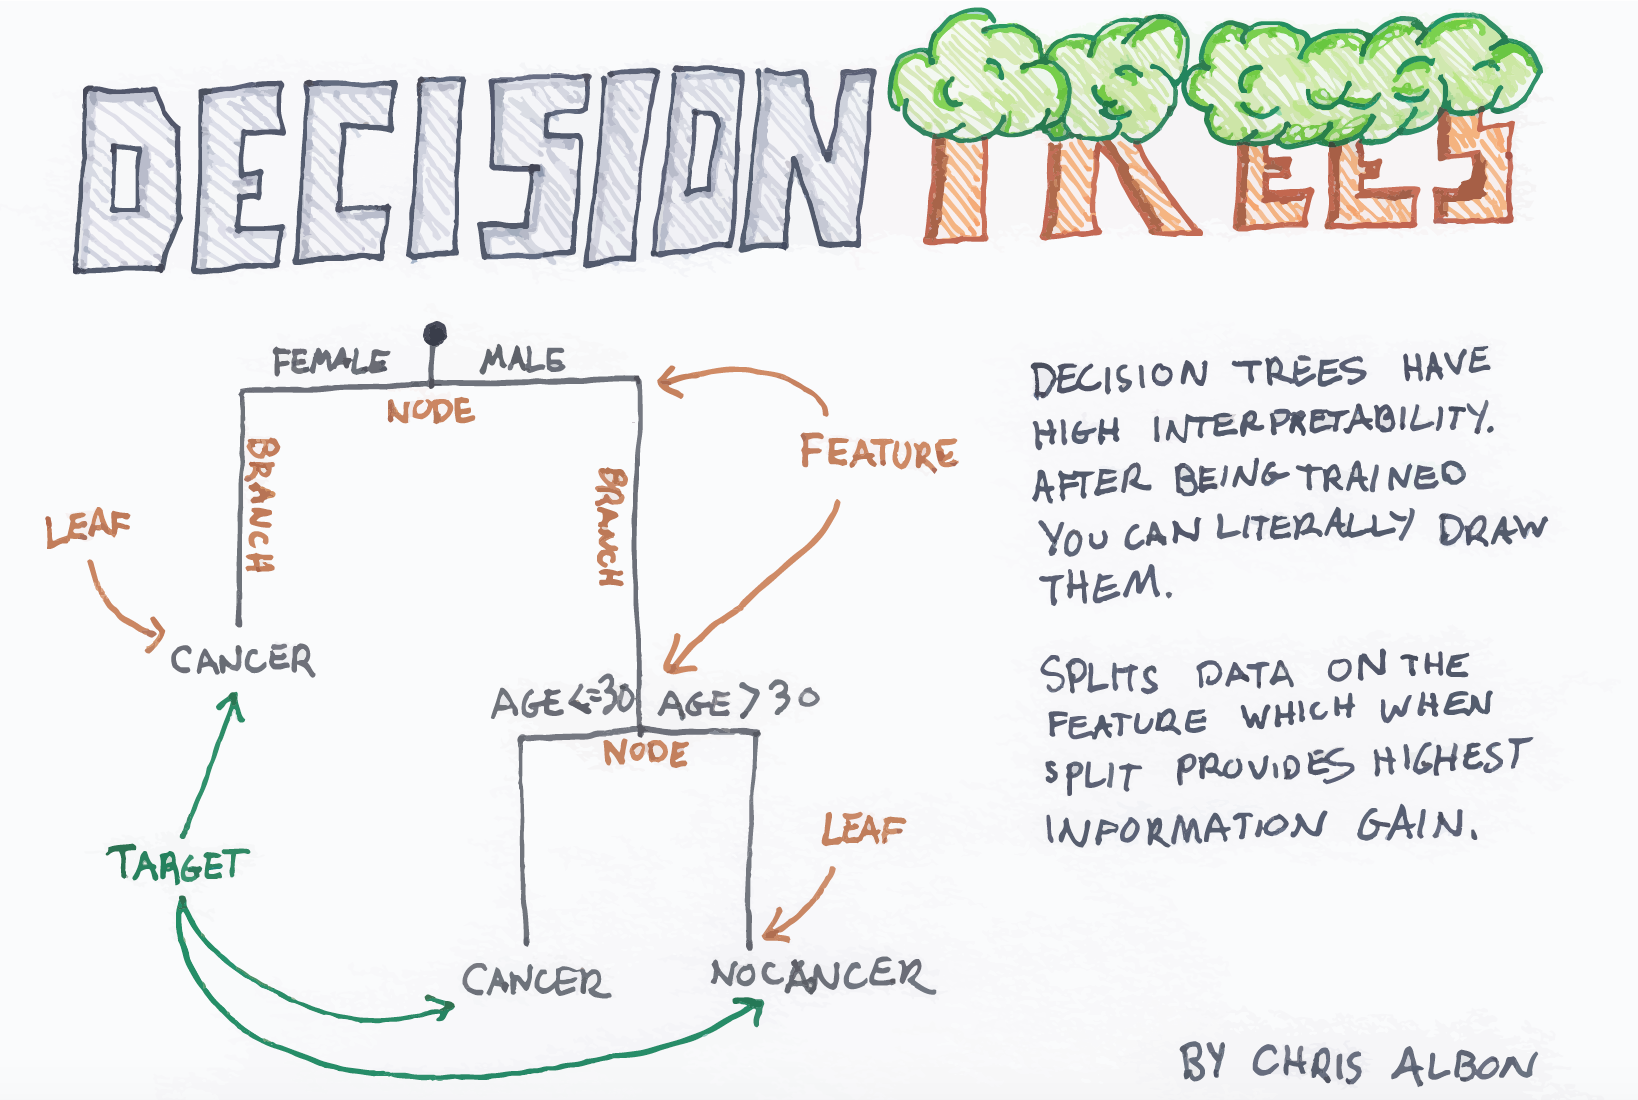 DECISION TREES
FEMALE MALE
NODE
BRANCH
BRANCH
FEATURE
LEAF
CANCER
AGE <=30 AGE > 30
NODE
TARGET
LEAF
CANCER
NO CANCER
DECISION TREES HAVE
HIGH INTERPRETABILITY.
AFTER BEING TRAINED
YOU CAN LITERALLY DRAW
THEM.
SPLITS DATA ON THE
FEATURE WHICH WHEN
SPLIT PROVIDES HIGHEST
INFORMATION GAIN.
BY CHRIS ALBON